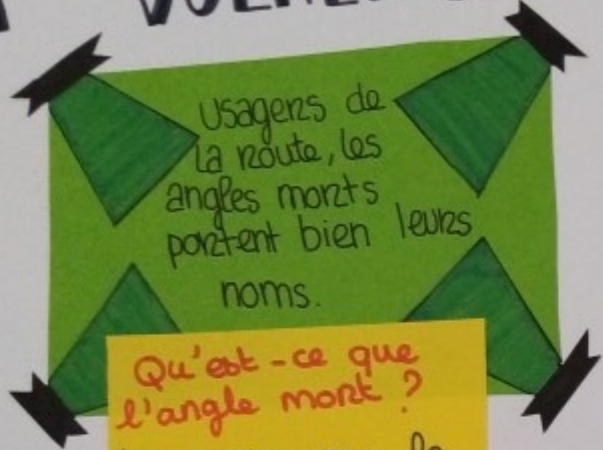 Usagers de
la route, les
angles morts
portent bien leurs
noms.
Qu'est-ce que
l'angle mort ?